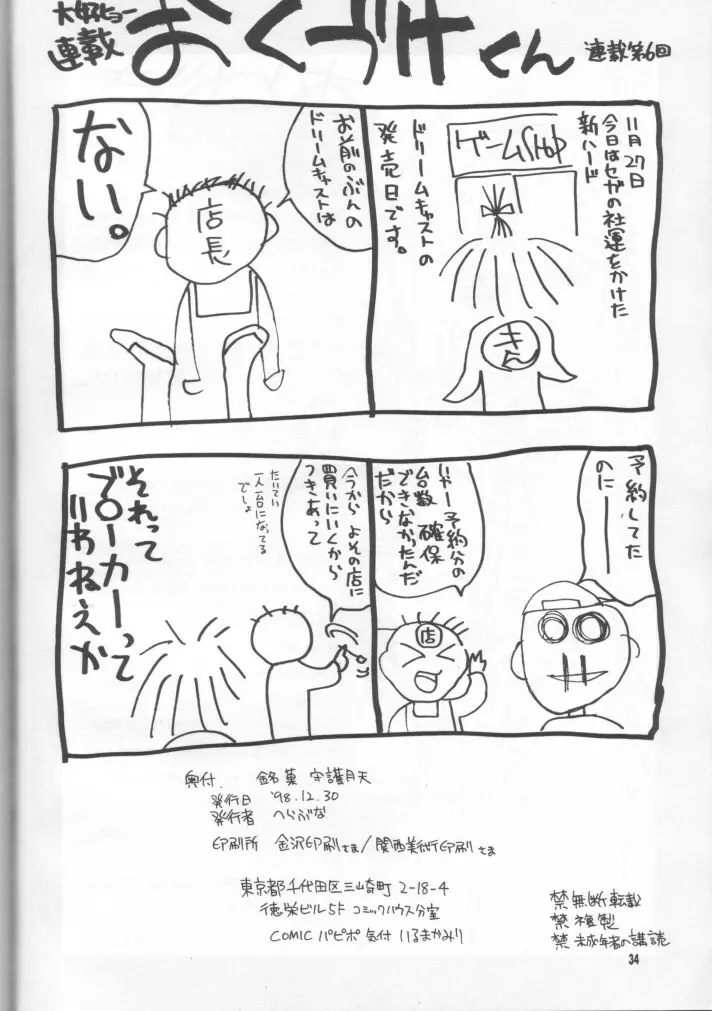 大好ヒョー
連載
おくづけくん
連載第6回
11月27日
今日はセガの社運をかけた
新ハード
ドリームキャストの
発売日です。
ゲームSHOP
きん
お前のぶんの
ドリームキャストは
店長
ない。
予約してた
のにーー
いやー予約分の
台数確保
できなかったんだ
だから
店
今から よその店に
買いにいくから
つきあって
たいてい
一人一台になってる
でしょ
それって
ブローカーって
いわねえか
奥付. 銘菓 守護月天
発行日 '98.12.30
発行者 へらぶな
印刷所 金沢印刷さま/関西美術印刷さま
東京都千代田区三崎町 2-18-4
徳栄ビル5F コミックハウス分室
COMIC パピポ 気付 いるまかみり
禁 無断転載
禁 複製
禁 未成年者の講読
34